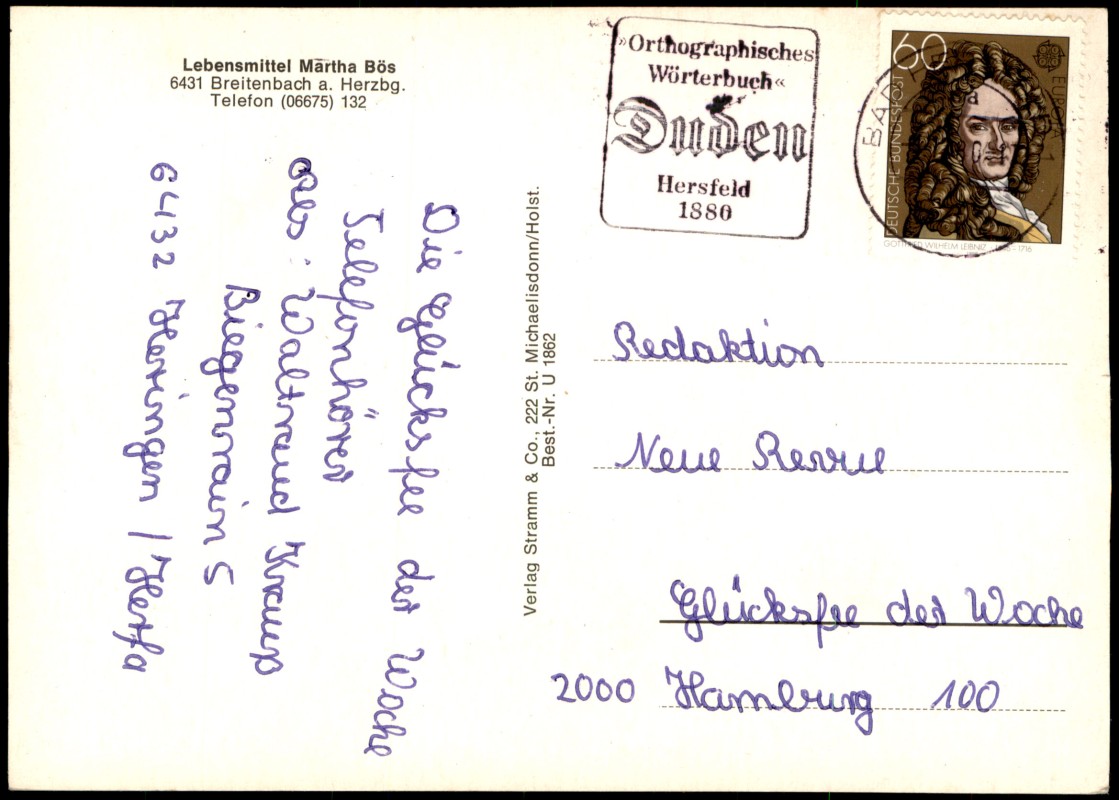 Lebensmittel Martha Bös
6431 Breitenbach a. Herzbg.
Telefon (06675) 132
»Orthographisches
Wörterbuch«
Duden
Hersfeld
1880
60
DEUTSCHE BUNDESPOST
EUROPA
GOTTFRIED WILHELM LEIBNIZ 1646-1716
BAD
Die Glücksfee der Woche
Telefonhörer
Abs: Waltraud Kraup
Biegenrain 5
6432 Heringen / Herfa
Verlag Stramm & Co., 222 St. Michaelisdonn/Holst.
Best.-Nr. U 1862
Redaktion
Neue Revue
Glücksfee der Woche
2000 Hamburg 100